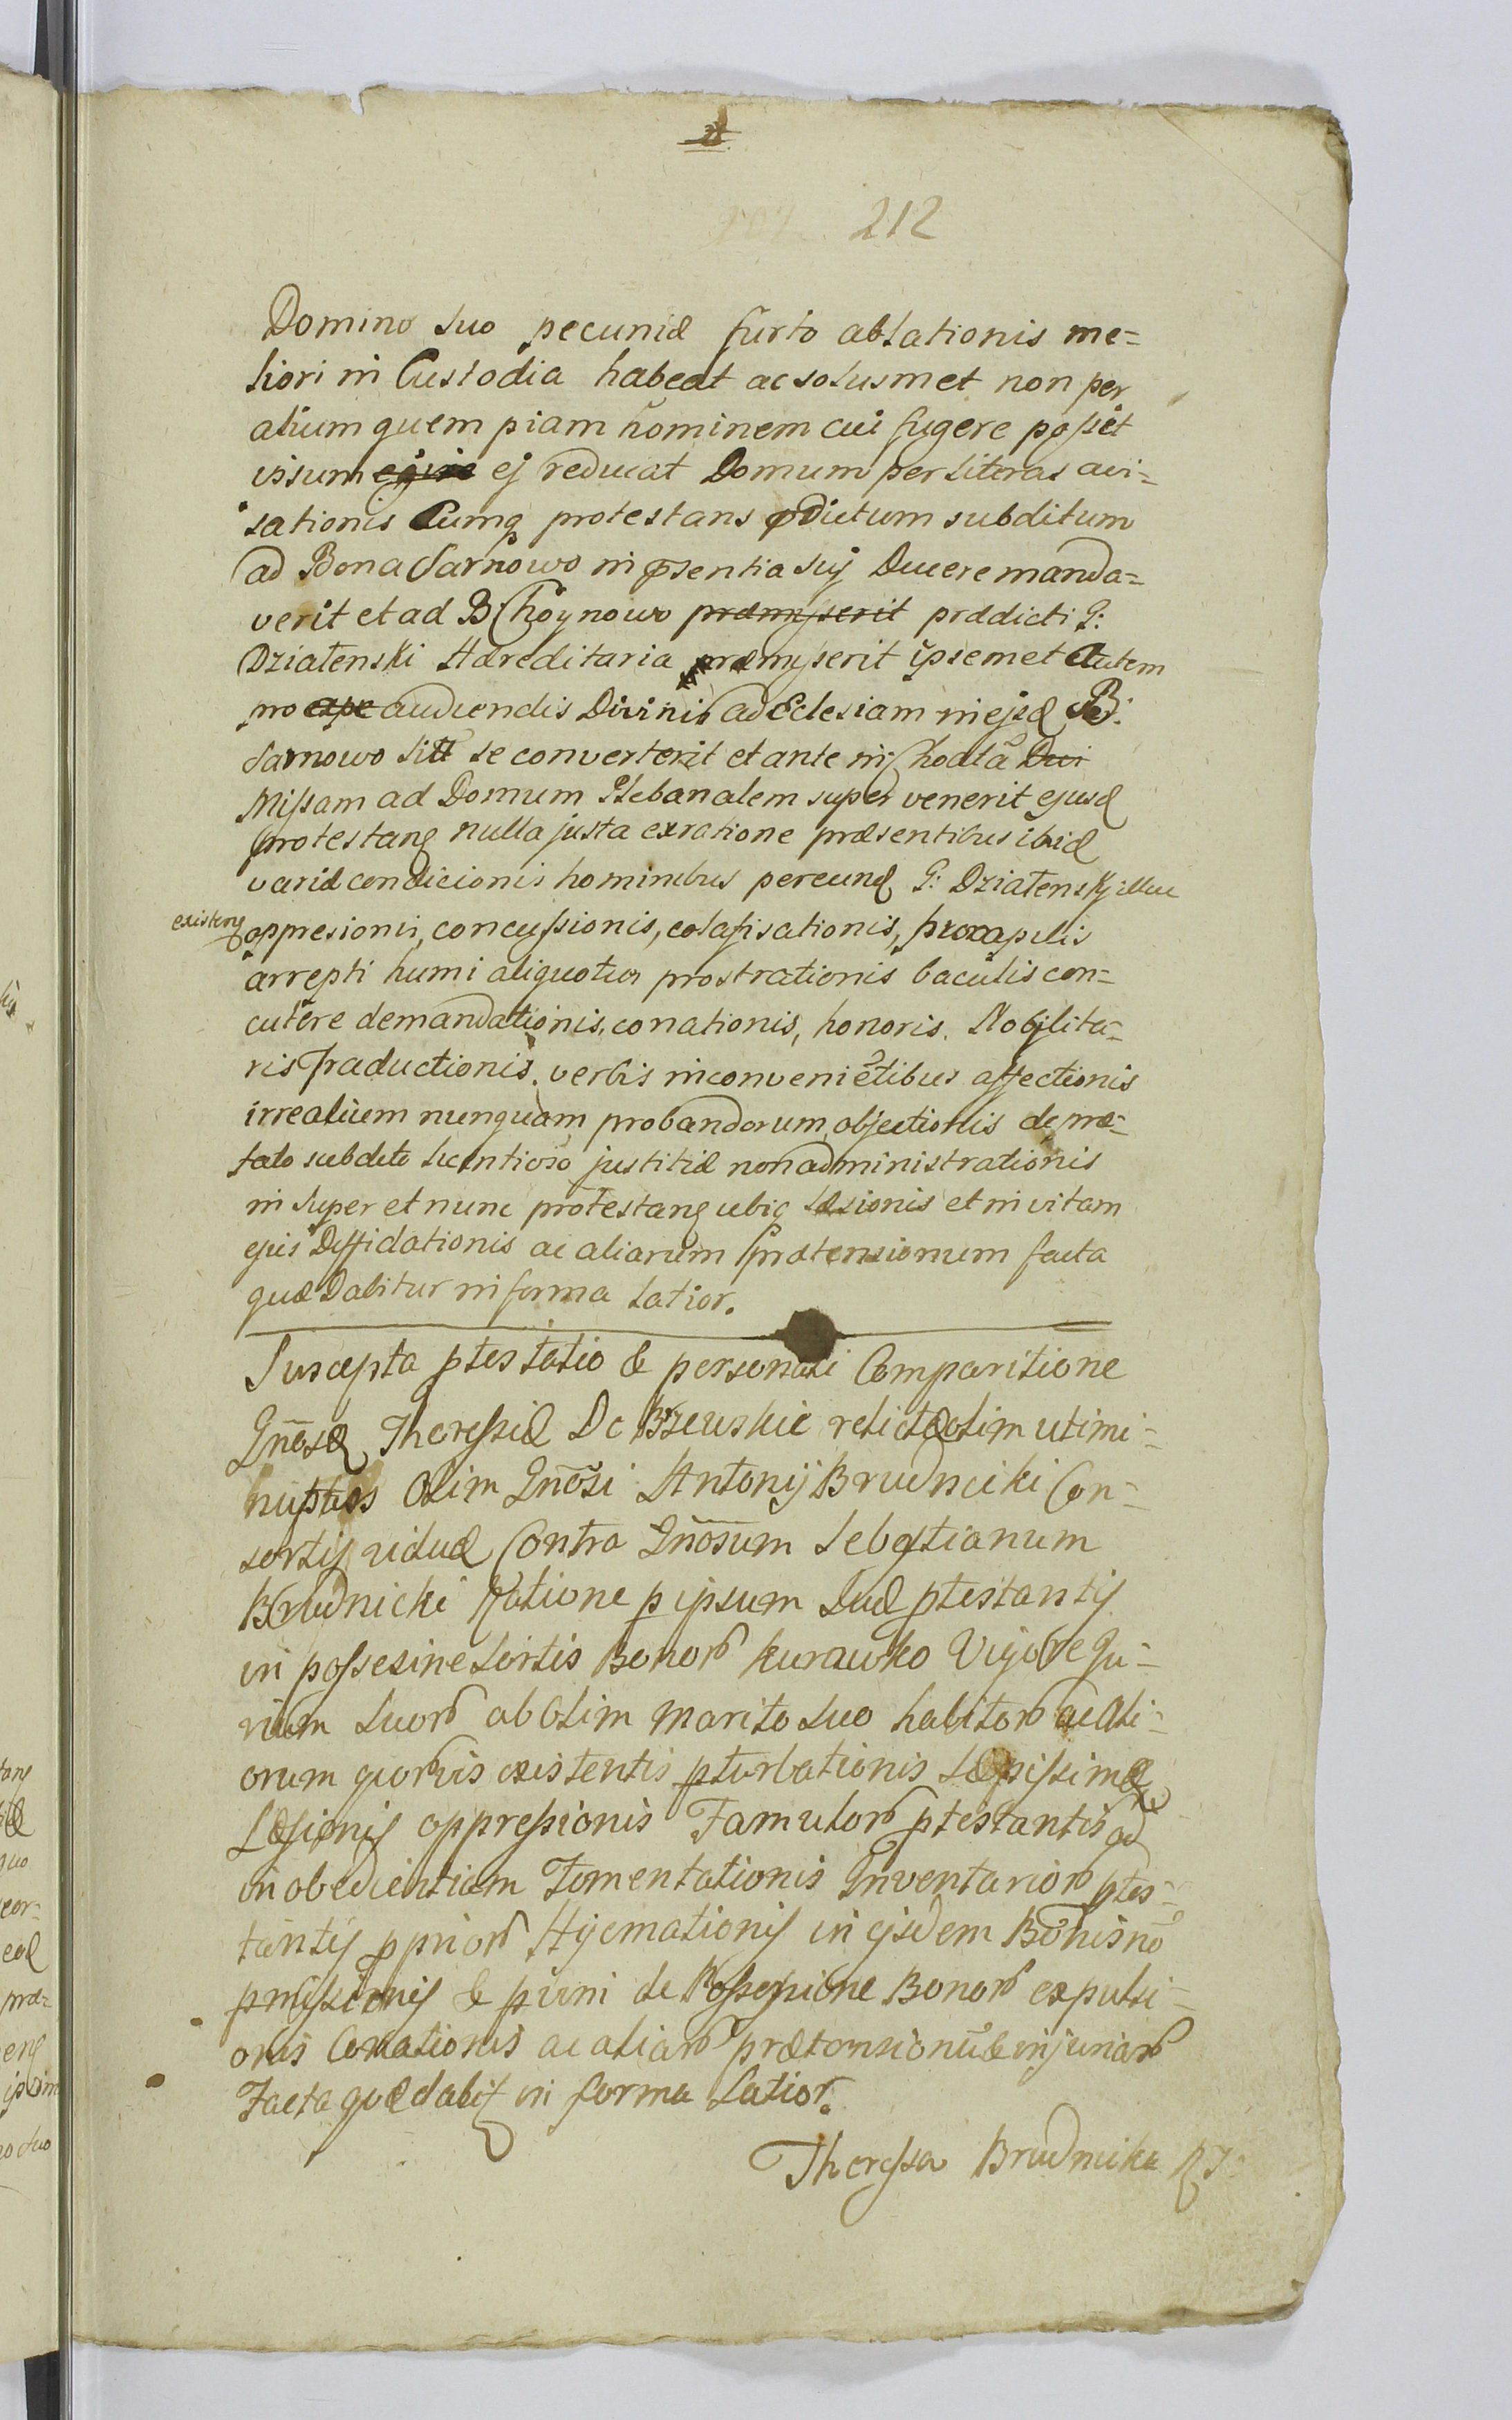 212
Domino suo pecuniæ furto ablationis me=
liori in Custodia habeat ac solusmet non per
alium quem piam hominem cui fugere posset
ipsum ej reducat Domum per literas avi=
sationis Cumq protestans pdictum subditum
ad Bona Sarnowo in psentia suj Ducere manda=
verit et ad B Choynowo præmiserit prædicti G:
Działenski Hæreditaria præmiserit ipsemet autem
pro expe audiendis Divinis ad Eclesiam in ejsd B:
Sarnowo sitt se converterit et ante inchoatã Divi
Missam ad Domum Plebanalem super venerit ejusd
protestang nulla justa ex ratione præsentibus ibid
variæ condicionis hominibus per eund G: Działenskj illuc
existeng oppresionis, concussionis, colafisationis, pro capilis
arrepti humi aliquoties prostrationis baculis con=
cutere demandationis, conationis, honoris. Nobilita=
ris traductionis, verbis inconveniẽtibus affectionis
irrealium nunquam probandorum objectionis de præ=
fato subdito licentioso justitiæ non administrationis
in super et nunc protestang ubiq læsionis et in vitam
ejus Diffidationis ac aliarum prætensionum facta
quæ Dabitur in forma latior.
Suscepta ptestatio & personali Comparitione
Gñosæ Theressiæ De Bzewskie relictæ olim utimi=
nuptæs Olim Gñosi Antonij Brudnicki Con=
sortis viduæ Contra Gñosum Sebastianum
Brudnicki Ratione p ipsum suæ ptestantis
in possesine sortis Bonor Kurawko Vigore Ju=
rium suor ab Olim marito suo habitor ac Ali=
orum quorvis existentis pturbationis sæpissimæ
Læsionis oppressionis Famulor ptestantis ad
inobedientiam Fomentationis Inventarior ptes=
tantis pprior Hyemationis in ejsdem Bonis nõ
pmissionis & de Possessione Bonor expulsi=
onis Conationis ac aliar prætensionũ & injuriar
Facta quæ dabit in forma Latior.
Theressa Brudnicka